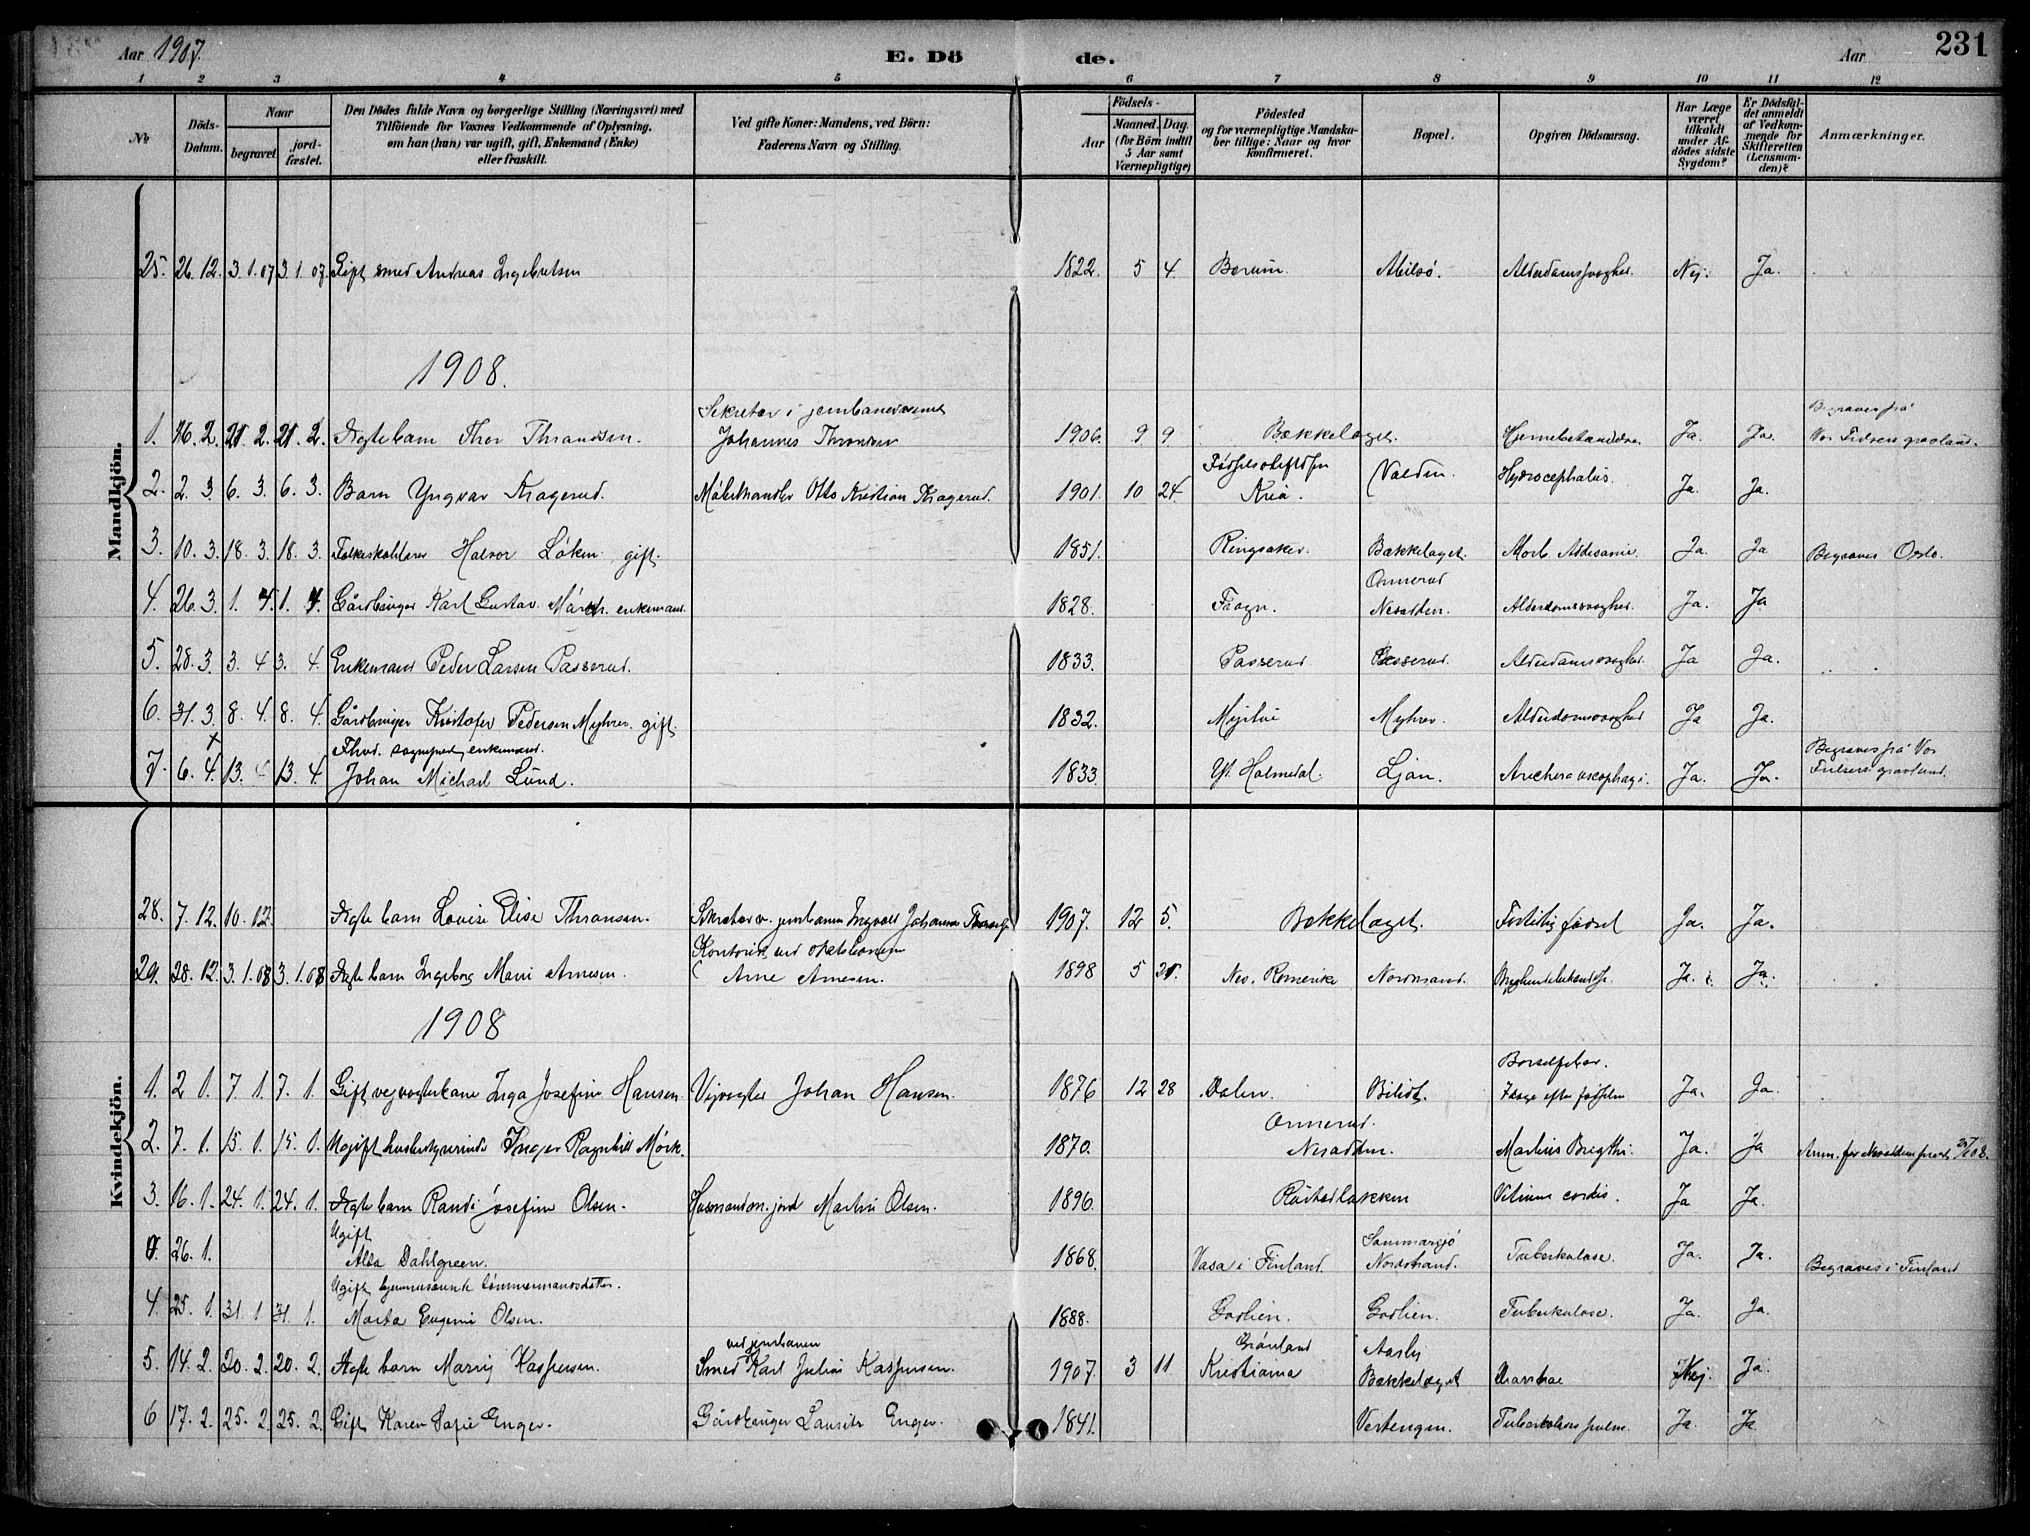 Aar 1907.
E. Dö de.
Aar
231
1 2 3 4 5 6 7 8 9 10 11 12
No
Döds-Datum.
Naar
begravet
jord-fæstet.
Den Dödes fulde Navn og borgerlige Stilling (Næringsvei) med
Tilföiende for Voxnes Vedkommende af Oplysning,
om han (hun) var ugift, gift, Enkemand (Enke)
eller fraskilt.
Ved gifte Koner: Mandens, ved Börn:
Faderens Navn og Stilling.
Födsels-
Aar
Maaned. Dag.
(for Börn indtil
5 Aar samt
Værnepligtige)
Födested
og for værnepligtige Mandska-
ber tillige: Naar og hvor
konfirmeret.
Bopæl.
Opgiven Dödsaarsag.
Har Læge
været
tilkaldt
under Af-
dödes sidste
Sygdom?
Er Dödsfal-
det anmeldt
af Vedkom-
mende for
Skifteretten
(Lensman-
den)?
Anmærkninger.
Mandkjön.
25. 26. 12. 3. 1. 07 3. 1. 07. Gift smed Andreas Ingebretsen 1822. 5 4. Bærum. Abilsö. Alderdomssvaghed. Nej. Ja.
1908.
Sekretær i jernbanevæsenet
Begraves på
1. 16. 2. 21. 2. 21. 2. Ægte barn Thor Thrandsen. Johannes 1906. 9 9 Bækkelaget. Ja. Ja. Vor Frelsers gravlund.
Fødselsstiftelsen
2. 2. 3. 6. 3. 6. 3. Barn Yngvar Kragerud. Møbelhandler Otto Kristian Kragerud. 1901. 10 24. Kria. Hydrocephalus. Ja. Ja.
3. 10. 3. 18. 3. 18. 3. Folkeskolelærer Halvor Løken gift. 1851. Ringsaker. Bækkelaget. Morb. Addisonii. Ja. Ja Begraves Oslo.
Ormerud
4. 26. 3. 1. 4. 1. 4. Gårdbruger Karl Gustav Mørch. enkemand. 1828. Frogn. Nesodden. Alderdomssvaghed. Ja. Ja
5. 28. 3. 3. 4. 3. 4. Enkemand Peder Larsen Passerud. 1833. Passerud Passerud. Alderdomssvaghed. Ja Ja.
6. 31. 3. 8. 4. 8. 4. Gårdbruger Kristofer Pedersen Myhrer. gift. 1832. Myhrer. Alderdomssvaghed Ja Ja.
Fhv. sogneprest, enkemand.
Begraves på Vor
7. 6. 4. 13. 4 13. 4 Johan Michael Lund. 1833. Y. Holmedal. Ljan. Ja. Ja. Frelsers gravlund.
Kvindekjön.
28. 7. 12. 10. 12. Ægte barn Lovise Elise Thransen. Sekretær v. jernbanen Ingvald Johannes 1907. 12 5. Bækkelaget. Fortidlig fødsel Ja. Ja.
Kontorist ved
29. 28. 12. 3. 1. 08 3. 1. 08 Ægte barn Ingeborg Marie Arnesen. Arne Arnesen. 1898 5 21. Nes. Romerike Nordstrand. Ja. Ja.
1908
Barselfeber.
1. 2 1. 7 1. 7. 1. Gift vejvogterkone Inga Josefine Hansen Vejvogter Johan Hansen. 1876 12 28 Dalen. Bilidt. dage efter fødselen Ja. Ja.
Ormerud.
2. 7. 1. 15. 1. 15. 1. Ugift husbestyrerinde Inger Ragnhild Mørk. 1870. Nesodden. Morbus Brigthi. Ja. Ja Anm. for Nesodden prest
3. 16. 1. 24. 1. 24. 1. Ægte barn Randi Josefine Olsen. Husmand m. jord Martin Olsen. 1896. Rustadløkken Vitium cordis. Ja Ja.
Ugift
0. 26. 1. Alda Dahlgreen. 1868. Vasa i Finland. Sommarsjø Nordstrand. Tuberkulose. Ja. Ja. Begraves i Finland
Ugift hjemmeværende tømmermandsdatter.
4. 25. 1. 31. 1 31. 1. Marta Eugenie Olsen. 1888. Godlien. Godlien. Tuberkulose. Ja. Ja.
ved jernbanen
Grønland
5. 14. 2. 20. 2. 20. 2. Ægte barn Marry Kaspersen. Smed Karl Julius Kaspersen. 1907. 3 11 Kristiania Aasly Bækkelaget Diarrhoe Nej. Ja.
6 17. 2. 25. 2. 25. 2 Gift Karen Sofie Enger. Gårdbruger Laurits Enger. 1841. Vestengen. Tuberkulose pulm. Ja. Ja